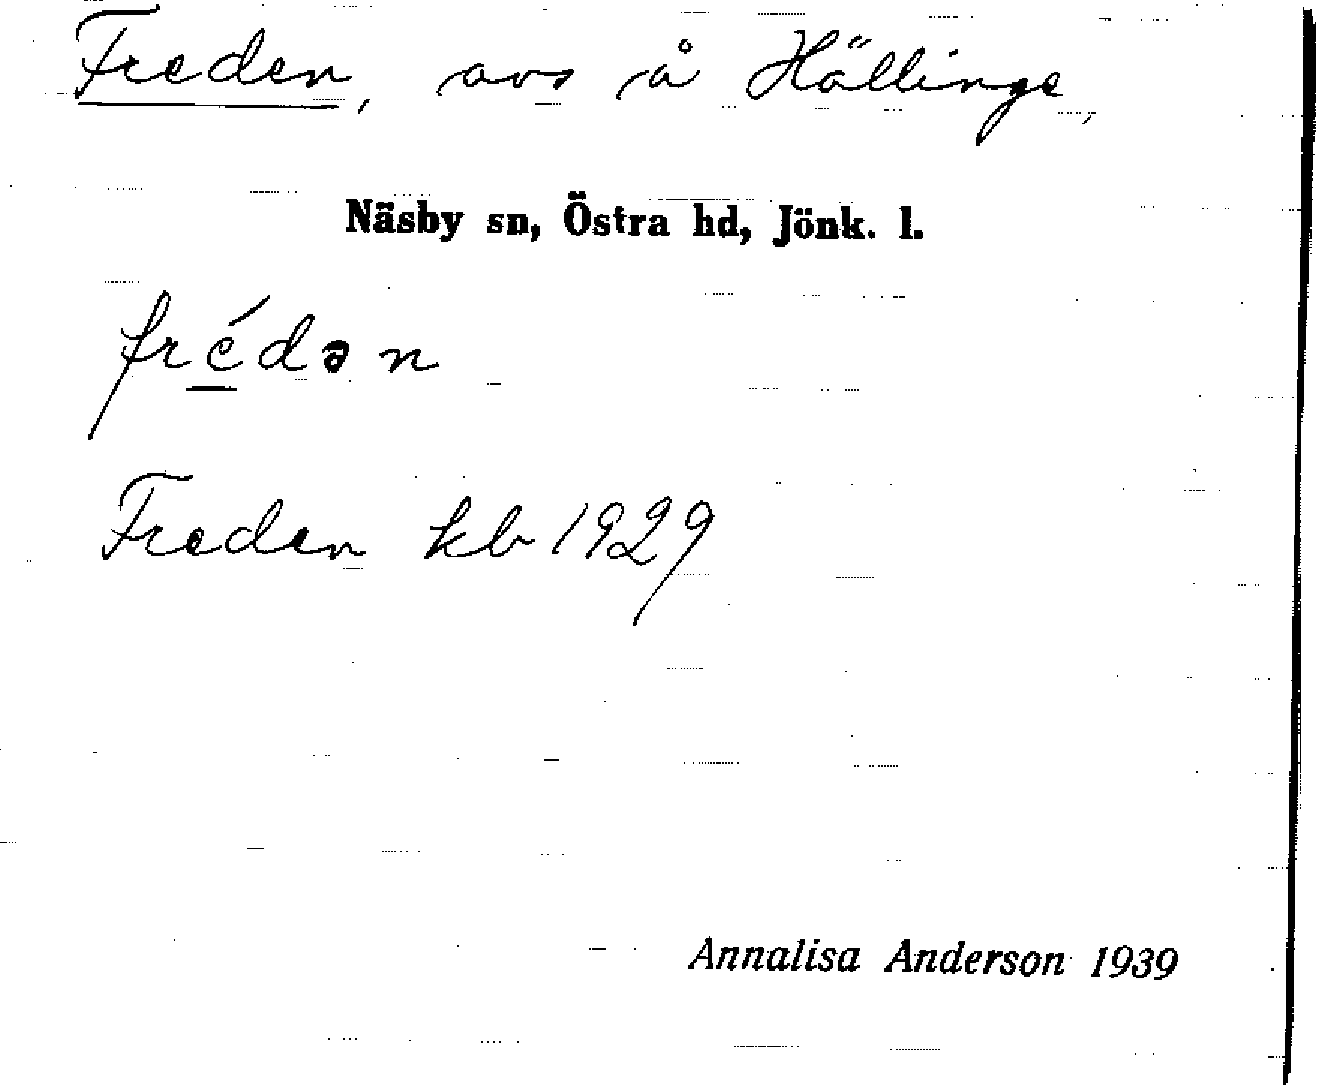 Freden, avs å Hällinge,
Näsby sn, Östra hd, Jönk. l.
frédən
Freden kb 1929
Annalisa Anderson 1939